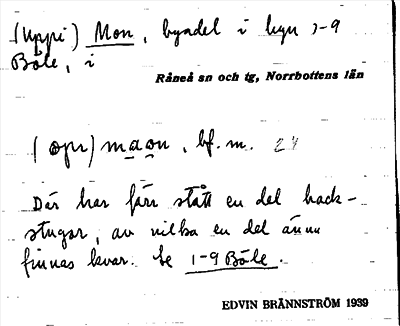 (Uppi) Mon, byadel i byn 1-9
Böle, i
Råneå sn och tg, Norrbottens län
(opı) maon, bf. m. 24
Där har förr stått en del back-
stugor, av vilka en del ännu
finnas kvar. Se 1-9 Böle.
EDVIN BRÄNNSTRÖM 1939